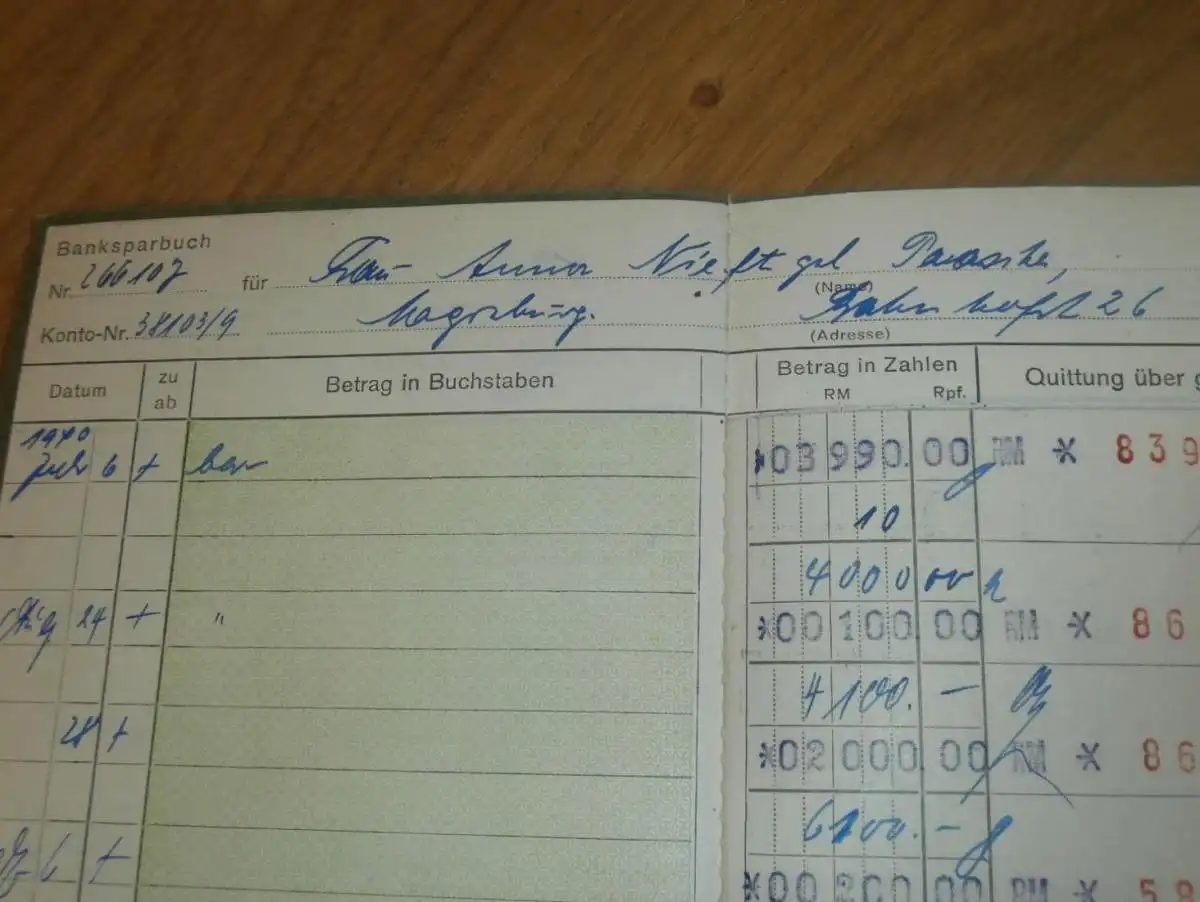 Banksparbuch
Nr. 266107 für Frau Anna
(Name)
Konto-Nr. 38103/9 Magdeburg. Bahnhofst 26
(Adresse)
Datum zu ab Betrag in Buchstaben Betrag in Zahlen RM Rpf. Quittung über g
1940
Juli 6 + bar *03990.00 RM * 839
10
4000 00
Aug 24 + " *00100.00 RM * 86
4100.—
28 + *02000.00 RM * 86
6100.—
6 + *00200 00 RM * 59